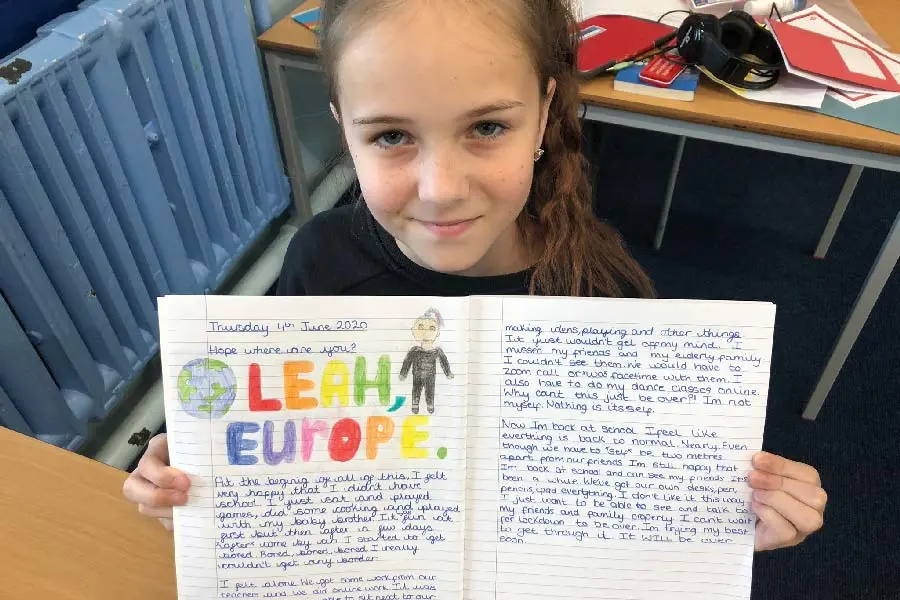 Thursday 4th June 2020
Hope where are you?
LEAH,
EUROPE.
At the begining of all of this, I felt
very happy that I didn't have
school. I just sat and played
games, did some cooking and played
with my baby brother. It fun at
first but then after a few days
I started to get
bored. Bored, bored, bored I really
couldn't get any border.
I felt alone. We got some work from our
teachers and we did online work. It was
able to sit next to our
making idens, playing and other things.
It just wouldn't get off my mind. I
missed my friends and my elderly family
I couldn't see them. We would have to
Zoom call or facetime with them. I
also have to do my dance classes online.
Why cant this just be over?! Im not
myself. Nothing is itsself.
Now Im back at school I feel like
everthing is back to normal. Nearly. Even
though we have to be two metres
apart from our friends Im still happy that
Im back at school and can see my friends its
been a while. We've got our own desk, pen
pencils, ipad everything. I don't like it this way
I just want to be able to see and talk to
my friends and family properly I can't wait
for lockdown to be over. Im trying my best
to get through it. It WILL be over
soon.